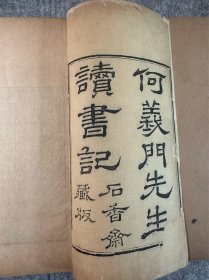 何義門先生
讀書記
石香齋
藏板